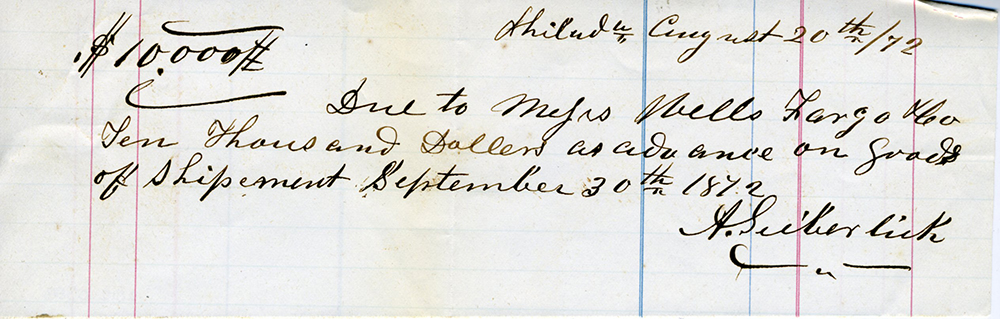 Philada August 20th/72
$10.000#
Due to Messrs Wells Fargo &Co
Ten Thousand Dollers as advance on goods
of Shipement September 30th 1872
A. Seiberlick